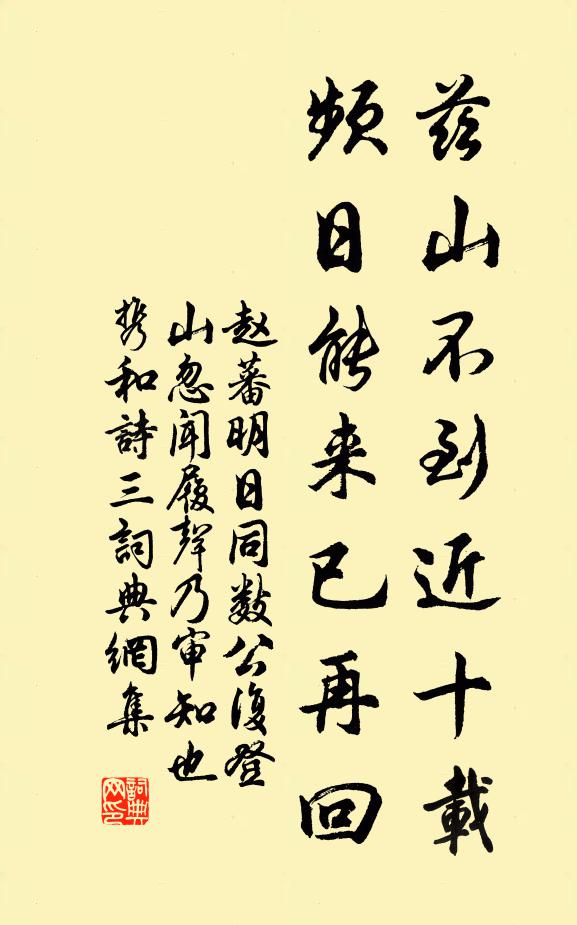 茲山不到近十載
頻日能来已再回
赵蕃明日同數公復登
山忽闻履聲乃审知也
携和詩三詞典網集
詞典網印